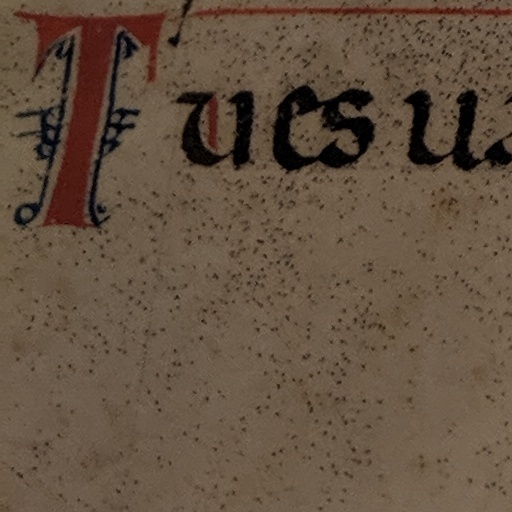 Tues ua